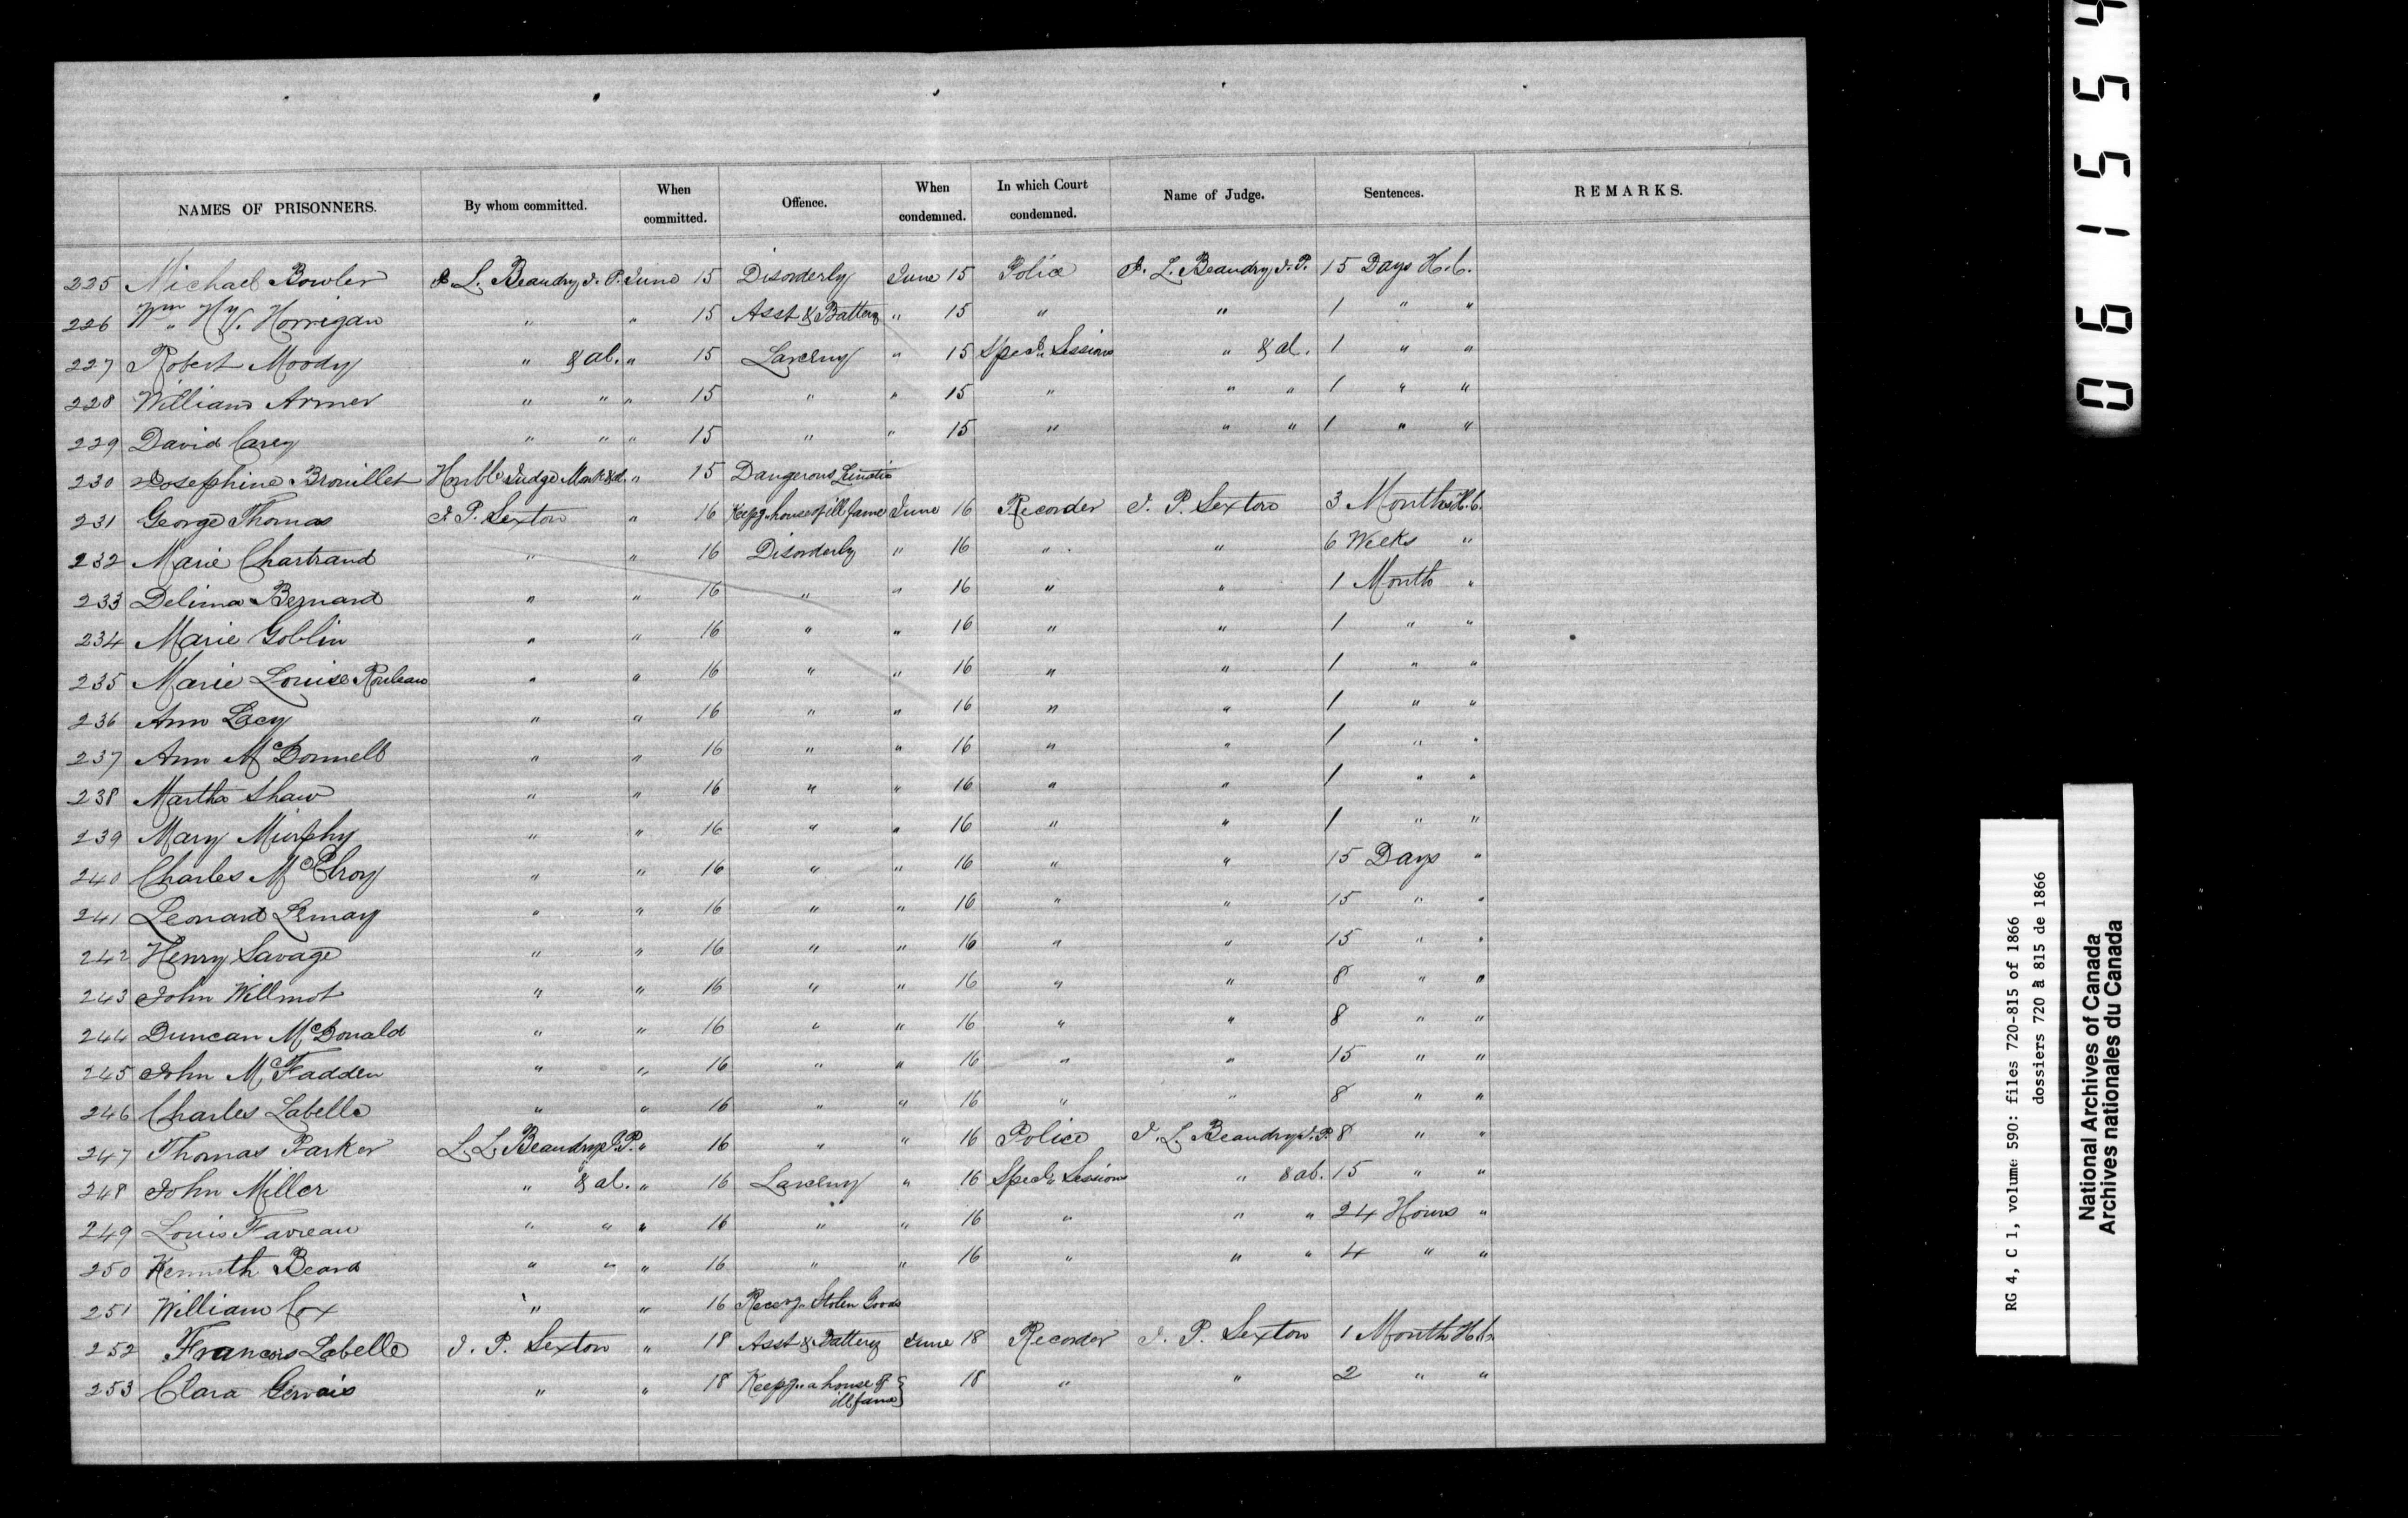 NAMES OF PRISONNERS. By whom committed. When committed. Offence. When condemned. In which Court condemned. Name of Judge. Sentences. REMARKS.
225 Michael Bowler J. L. Beaudry J. P. June 15 Disorderly June 15 Police J. L. Beaudry J. P. 15 Days H. L.
226 Wm Hy. Horrigan " " 15 Asst & Battery " 15 " " 1 " "
227 Robert Moody " & al. " 15 Larceny " 15 Specl. Sessions " & al. 1 " "
228 William Armer " " " 15 " " 15 " " " 1 " "
229 David Carey " " " 15 " " 15 " " " 1 " "
230 Josephine Brouillet Honble Judge " 15 Dangerous Lunatic
231 George Thomas J. P. Sexton " 16 Keepg. house of ill fame June 16 Recorder J. P. Sexton 3 Months H. L.
232 Marie Chartrand " " 16 Disorderly " 16 " " 6 Weeks "
233 Delima Bernard " " 16 " " 16 " " 1 Month "
234 Marie Goblin " " 16 " " 16 " " 1 " "
235 Marie Louise Rouleau " " 16 " " 16 " " 1 " "
236 Ann Lacy " " 16 " " 16 " " 1 " "
237 Ann McDonnell " " 16 " " 16 " " 1 " "
238 Martha Shaw " " 16 " " 16 " " 1 " "
239 Mary Murphy " " 16 " " 16 " " 1 " "
240 Charles McElroy " " 16 " " 16 " " 15 Days "
241 Leonard Lemay " " 16 " " 16 " " 15 " "
242 Henry Savage " " 16 " " 16 " " 15 " "
243 John Willmot " " 16 " " 16 " " 8 " "
244 Duncan McDonald " " 16 " " 16 " " 8 " "
245 John McFadden " " 16 " " 16 " " 15 " "
246 Charles Labelle " " 16 " " 16 " " 8 " "
247 Thomas Parker L. L. Beaudry J. P. " 16 " " 16 Police J. L. Beaudry J. P. 8 " "
248 John Miller " & al. " 16 Larceny " 16 Specl. Sessions " & al. 15 " "
249 Louis Favreau " " " 16 " " 16 " " " 24 Hours "
250 Kenneth Beard " " " 16 " " 16 " " " 4 " "
251 William Cox " " 16 Receivg. Stolen Goods
252 Francois Labelle J. P. Sexton " 18 Asst & Battery June 18 Recorder J. P. Sexton 1 Month H. L.
253 Clara Gervais " " 18 Keepg. a house of ill fame } 18 " " 2 " "
061554
RG 4, C 1, volume 590: files 720-815 of 1866
dossiers 720 à 815 de 1866
National Archives of Canada
Archives nationales du Canada